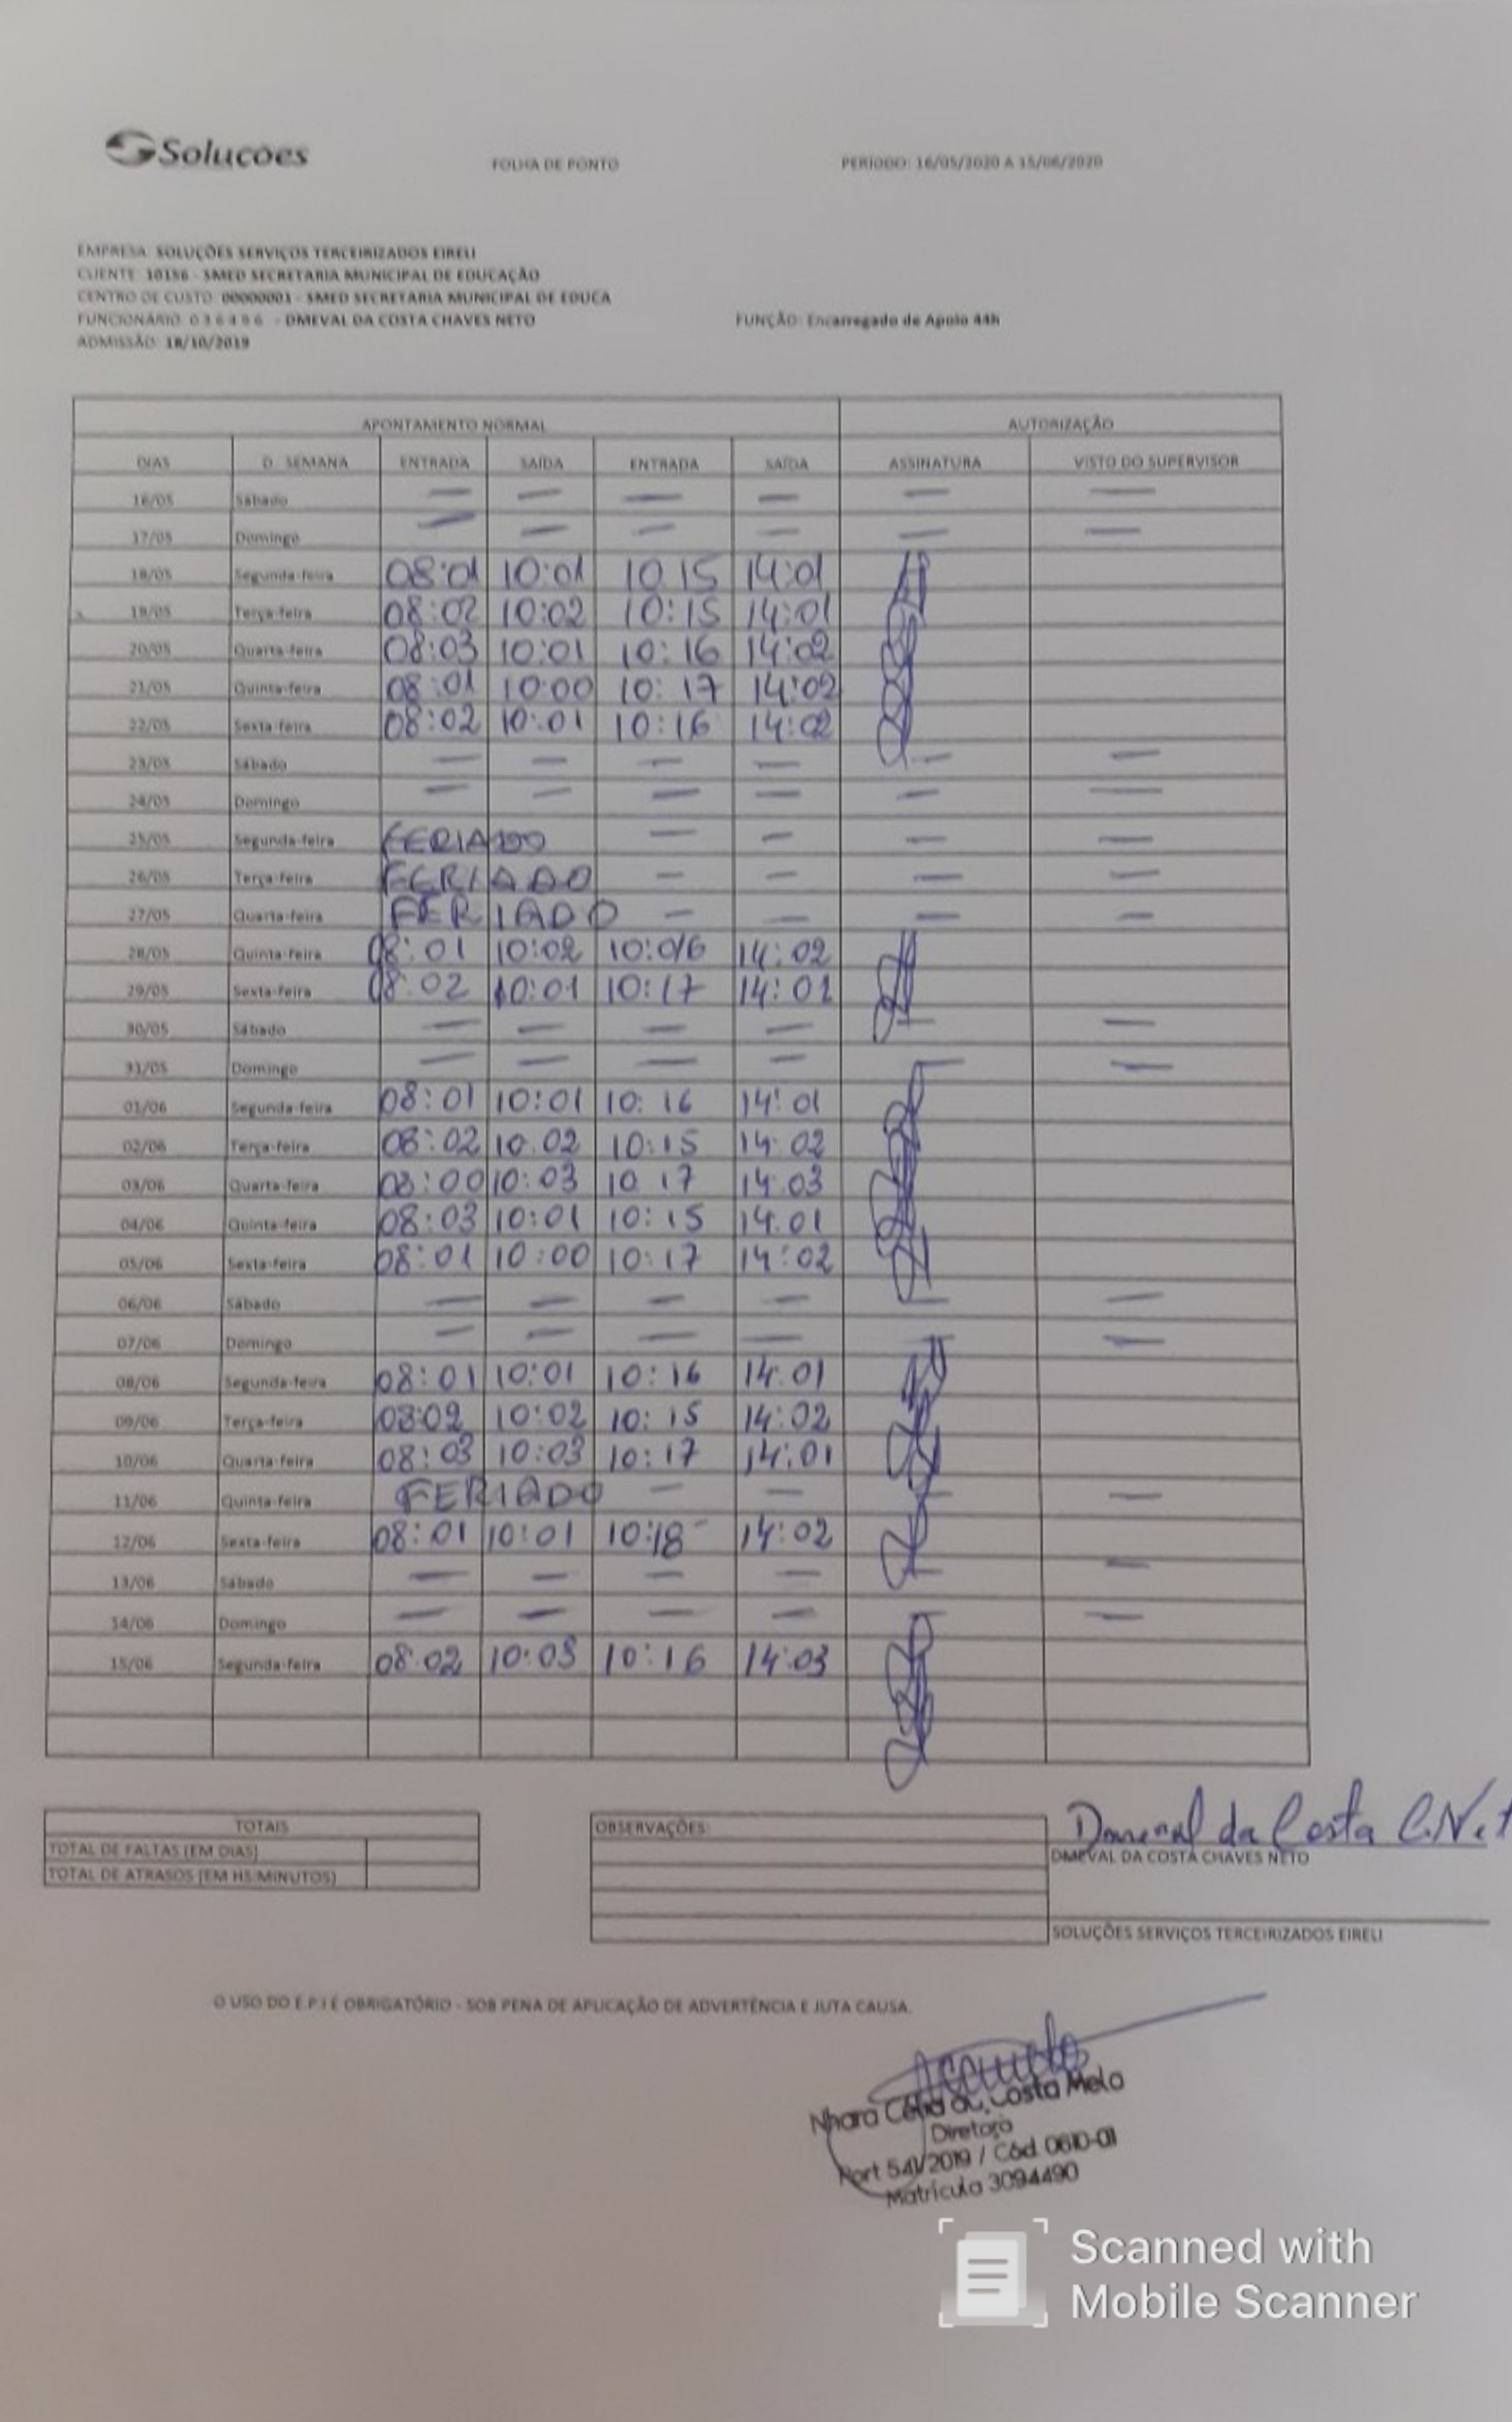 Soluções
FOLHA DE PONTO
PERÍODO: 16/05/2020 A 15/06/2020
EMPRESA: SOLUÇÕES SERVIÇOS TERCEIRIZADOS EIRELI
CLIENTE: 10156 - SMED SECRETARIA MUNICIPAL DE EDUCAÇÃO
CENTRO DE CUSTO: 00000001 - SMED SECRETARIA MUNICIPAL DE EDUCA
FUNCIONÁRIO: 0 3 6 4 9 6 - DMEVAL DA COSTA CHAVES NETO FUNÇÃO: Encarregado de Apoio 44h
ADMISSÃO: 18/10/2019
APONTAMENTO NORMAL AUTORIZAÇÃO
DIAS D. SEMANA ENTRADA SAÍDA ENTRADA SAÍDA ASSINATURA VISTO DO SUPERVISOR
16/05 Sábado — — — — — —
17/05 Domingo — — — — — —
18/05 Segunda-feira 08:01 10:01 10 15 14:01
19/05 Terça-feira 08:02 10:02 10:15 14:01
20/05 Quarta-feira 08:03 10:01 10:16 14:02
21/05 Quinta-feira 08:01 10:00 10:17 14:02
22/05 Sexta-feira 08:02 10:01 10:16 14:02
23/05 Sábado — — — — — —
24/05 Domingo — — — — — —
25/05 Segunda-feira FERIADO — — — —
26/05 Terça-feira FERIADO — — — —
27/05 Quarta-feira FERIADO — — — —
28/05 Quinta-feira 08:01 10:02 10:016 14:02
29/05 Sexta-feira 08:02 10:01 10:17 14:01
30/05 Sábado — — — — — —
31/05 Domingo — — — — — —
01/06 Segunda-feira 08:01 10:01 10:16 14:01
02/06 Terça-feira 08:02 10.02 10:15 14:02
03/06 Quarta-feira 08:00 10:03 10 17 14.03
04/06 Quinta-feira 08:03 10:01 10:15 14.01
05/06 Sexta-feira 08:01 10:00 10:17 14:02
06/06 Sábado — — — — — —
07/06 Domingo — — — — — —
08/06 Segunda-feira 08:01 10:01 10:16 14:01
09/06 Terça-feira 08:02 10:02 10:15 14:02
10/06 Quarta-feira 08:03 10:03 10:17 14:01
11/06 Quinta-feira FERIADO — — — —
12/06 Sexta-feira 08:01 10:01 10:18 14:02
13/06 Sábado — — — — — —
14/06 Domingo — — — — — —
15/06 Segunda-feira 08:02 10:03 10:16 14:03
TOTAIS
TOTAL DE FALTAS (EM DIAS)
TOTAL DE ATRASOS (EM HS/MINUTOS)
OBSERVAÇÕES:
Dmeval da Costa C. Net
DMEVAL DA COSTA CHAVES NETO
SOLUÇÕES SERVIÇOS TERCEIRIZADOS EIRELI
O USO DO E.P.I É OBRIGATÓRIO - SOB PENA DE APLICAÇÃO DE ADVERTÊNCIA E JUTA CAUSA.
Nhara Costa Melo
Diretora
Port 541/2019 / Cód. 0610-01
Matrícula 3094490
Scanned with
Mobile Scanner